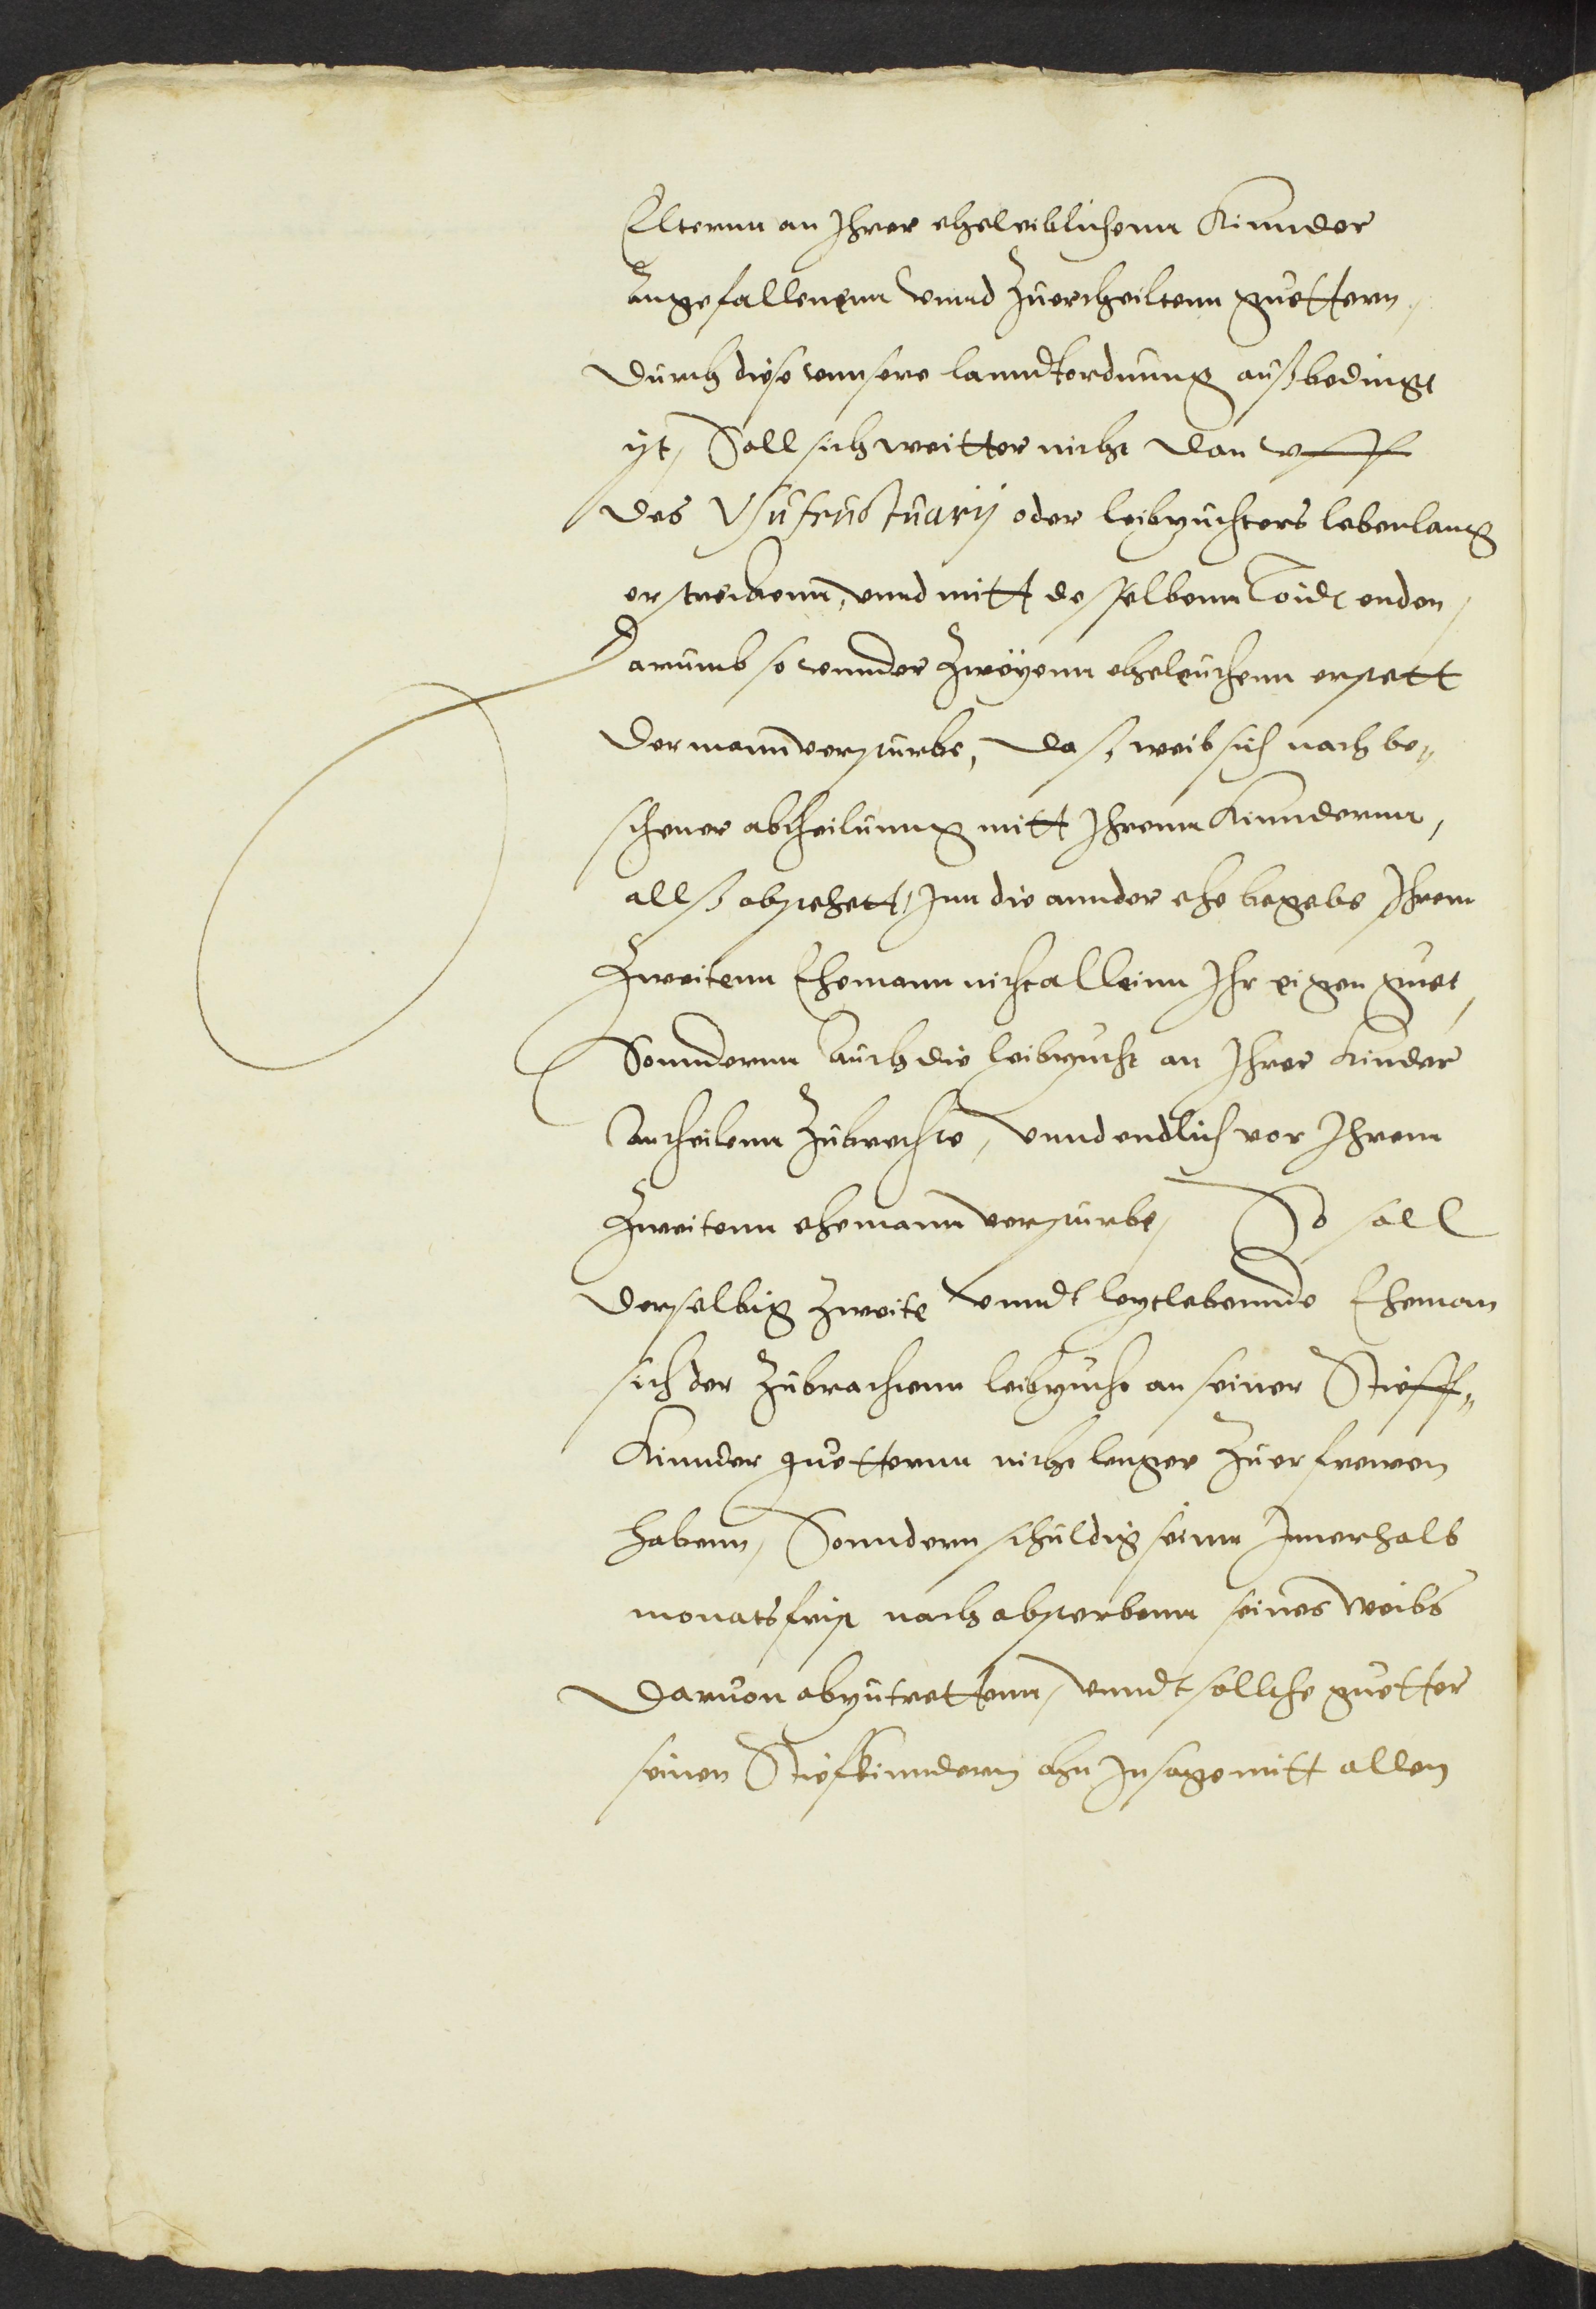 Elternn an Ihrer eheleiblichenn Kinnder
Angefallenenn vnnd Zuertheiltenn guettern,
durch diese vnnsere lanndtordnung außbedingt
ist, Soll sich weitter nicht dan vff
des Vsufructuarij oder leibzuchters lebenlang
erstreckenn, vnnd mitt desselbenn Toidt enden,
Darumb so vnnder Zweyenn eheleuthenn erstett
der mann versturbe, daß weib sich nach be„
schener abtheilunng mitt Ihrenn Kinndernn,
allß obstehett, Inn die annder ehe begebe Ihrem
Zweitenn Ehemann nicht alleinn Ihr eigen guet,
Sonndernn Auch die leibzucht an Ihrer Kinder
Antheilenn Zubrechte, vnnd endlich vor Ihrem
Zweitenn ehemann versturbe, So sall
derselbig Zweite vnndt leztlebennde Eheman
sich der Zubrachtenn leibzucht an seiner Stieff„
Kinnder guetternn nicht lenger Zuerfrewen
habenn, Sonndern schuldig seinn Innerhalb
monatsfrist nach absterbenn seines weibs
daruon abzutrettenn, vnndt sollche guetter
seinen Stiefkinndern ahn Insage mitt allen